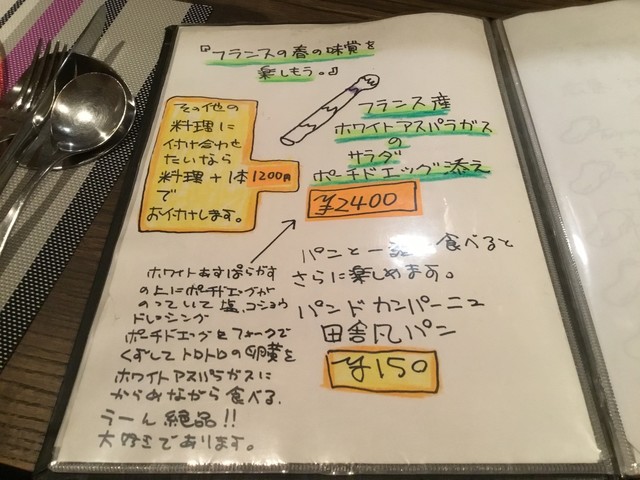 『フランスの春の味覚を
楽しもう。』
フランス産
ホワイトアスパラガス
の
サラダ
ポーチドエッグ添え
¥2400
その他の
料理に
付け合わせ
たいなら
料理+1本1200円
で
お付けします。
ホワイトあすぱらがす
の上にポーチドエッグが
のっていて塩、コショウ
ドレッシング
ポーチドエッグをフォークで
くずしてトロトロの卵黄を
ホワイトアスパラガスに
からめながら食べる、
うーん絶品!!
大好きであります。
パンと一緒に食べると
さらに楽しめます。
パンドカンパーニュ
田舎風パン
¥150